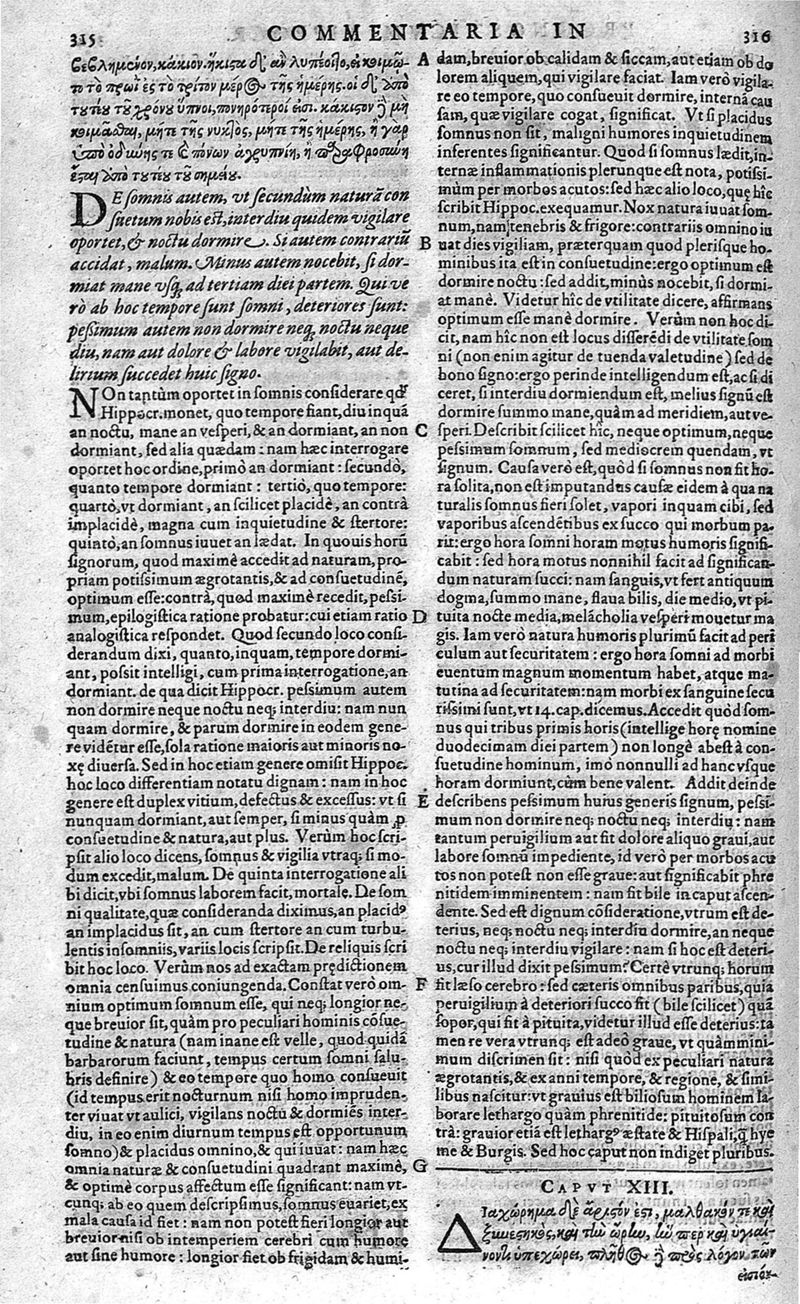 315
COMMENTARIA IN
316
τὸ πρωῒ ἐς τὸ τρίτον μέρος τῆς ἡμέρης. οἱ δ' ἀπὸ
κοιμᾶσθαι, μήτε τῆς νυκτὸς, μήτε τῆς ἡμέρης, ἢ γὰρ
DE somnis autem, vt secundùm naturã con
suetum nobis est, interdiu quidem vigilare
oportet, & noctu dormire. Si autem contrariũ
accidat, malum. Minus autem nocebit, si dor-
miat mane vsq; ad tertiam diei partem. Qui ve
rò ab hoc tempore sunt somni, deteriores sunt:
pessimum autem non dormire neq; noctu neque
diu, nam aut dolore & labore vigilabit, aut de-
lirium succedet huic signo.
NOn tantùm oportet in somnis considerare qđ
Hippocr. monet, quo tempore fiant, diu inquã
an noctu, mane an vesperi, & an dormiant, an non
dormiant, sed alia quædam: nam hæc interrogare
oportet hoc ordine, primò an dormiant: secundò,
quanto tempore dormiant: tertiò, quo tempore:
quartò, vt dormiant, an scilicet placidè, an contrà
implacidè, magna cum inquietudine & stertore:
quintò, an somnus iuuet an lædat. In quouis horũ
signorum, quod maximè accedit ad naturam, pro-
priam potissimum ægrotantis, & ad consuetudinẽ,
optimum esse: contrà, quod maximè recedit, pessi-
mum, epilogistica ratione probatur: cui etiam ratio
analogistica respondet. Quod secundo loco consi-
derandum dixi, quanto, inquam, tempore dormi-
ant, possit intelligi, cum prima interrogatione, an
dormiant. de qua dicit Hippocr. pessimum autem
non dormire neque noctu neq; interdiu: nam nun
quam dormire, & parum dormire in eodem gene-
re vidẽtur esse, sola ratione maioris aut minoris no-
xę diuersa. Sed in hoc etiam genere omisit Hippoc.
hoc loco differentiam notatu dignam: nam in hoc
genere est duplex vitium, defectus & excessus: vt si
nunquam dormiant, aut semper, si minus quàm ꝓ
consuetudine & natura, aut plus. Verùm hoc scri-
psit alio loco dicens, somnus & vigilia vtraq; si mo-
dum excedit, malum. De quinta interrogatione ali
bi dicit, vbi somnus laborem facit, mortale. De som
ni qualitate, quæ consideranda diximus, an placidꝰ
an implacidus sit, an cum stertore an cum turbu-
lentis insomniis, variis locis scripsit. De reliquis scri
bit hoc loco. Verùm nos ad exactam prędictionem
omnia censuimus coniungenda. Constat verò om-
nium optimum somnum esse, qui neq; longior ne-
que breuior sit, quàm pro peculiari hominis cõsue-
tudine & natura (nam inane est velle, quod quidã
barbarorum faciunt, tempus certum somni salu-
bris definire) & eo tempore quo homo consueuit
(id tempus erit nocturnum nisi homo impruden-
ter viuat vt aulici, vigilans noctu & dormiẽs inter-
diu, in eo enim diurnum tempus est opportunum
somno) & placidus omnino, & qui iuuat: nam hæc
omnia naturæ & consuetudini quadrant maximè,
& optimè corpus affectum esse significant: nam vt-
cunq; ab eo quem descripsimus, somnus euariet, ex
mala causa id fiet: nam non potest fieri longior aut
breuior nisi ob intemperiem cerebri cum humore
aut sine humore: longior fiet ob frigidam & humi-
A
B
C
D
E
F
G
dam, breuior ob calidam & siccam, aut etiam ob do
lorem aliquem, qui vigilare faciat. Iam verò vigila-
re eo tempore, quo consueuit dormire, internã cau
sam, quæ vigilare cogat, significat. Vt si placidus
somnus non sit, maligni humores inquietudinem
inferentes significantur. Quod si somnus lædit, in-
ternæ inflammationis plerunque est nota, potissi-
mùm per morbos acutos: sed hæc alio loco, quę hîc
scribit Hippoc. exequamur. Nox natura iuuat som-
num, nam tenebris & frigore: contrariis omnino iu
uat dies vigiliam, præterquam quod plerisque ho-
minibus ita est in consuetudine: ergo optimum est
dormire noctu: sed addit, minùs nocebit, si dormi-
at manè. Videtur hîc de vtilitate dicere, affirmans
optimum esse manè dormire. Verùm non hoc di-
cit, nam hîc non est locus disserẽdi de vtilitate som
ni (non enim agitur de tuenda valetudine) sed de
bono signo: ergo perinde intelligendum est, ac si di
ceret, si interdiu dormiendum est, melius signũ est
dormire summo mane, quàm ad meridiem, aut ve-
speri. Describit scilicet hîc, neque optimum, neque
pessimum somnum, sed mediocrem quendam, vt
signum. Causa verò est, quòd si somnus non fit ho-
ra solita, non est imputandus causæ eidem à qua na
turalis somnus fieri solet, vapori inquam cibi, sed
vaporibus ascendẽtibus ex succo qui morbum pa-
rit: ergo hora somni horam motus humoris signifi-
cabit: sed hora motus nonnihil facit ad significan-
dum naturam succi: nam sanguis, vt fert antiquum
dogma, summo mane, flaua bilis, die medio, vt pi-
tuita nocte media, melãcholia vesperi mouetur ma
gis. Iam verò natura humoris plurimũ facit ad peri
culum aut securitatem: ergo hora somni ad morbi
euentum magnum momentum habet, atque ma-
tutina ad securitatem: nam morbi ex sanguine secu
rissimi sunt, vt 14. cap. dicemus. Accedit quòd som-
nus qui tribus primis horis (intellige horę nomine
duodecimam diei partem) non longè abest à con-
suetudine hominum, imò nonnulli ad hanc vsque
horam dormiunt, cùm bene valent. Addit deinde
describens pessimum huius generis signum, pessi-
mum non dormire neq; noctu neq; interdiu: nam
tantum peruigilium aut fit dolore aliquo graui, aut
labore somnũ impediente, id verò per morbos acu
tos non potest non esse graue: aut significabit phre
nitidem imminentem: nam fit bile in caput ascen-
dente. Sed est dignum cõsideratione, vtrum est de-
terius, neq; noctu neq; interdiu dormire, an neque
noctu neq; interdiu vigilare: nam si hoc est deteri-
us, cur illud dixit pessimum? Certè vtrunq; horum
fit læso cerebro: sed cæteris omnibus paribus, quia
peruigilium à deteriori succo fit (bile scilicet) quã
sopor, qui fit à pituita, videtur illud esse deterius: ta
men re vera vtrunq; est adeò graue, vt quàm mini-
mum discrimen sit: nisi quòd ex peculiari natura
ægrotantis, & ex anni tempore, & regione, & simi-
libus nascitur: vt grauius est biliosum hominem la-
borare lethargo quàm phrenitide: pituitosum con
trà: grauior etiã est lethargꝰ æstate & Hispali, q̃ hye
me & Burgis. Sed hoc caput non indiget pluribus.
CAPVT XIII.
Διαχώρημα δὲ ἄριστόν ἐστι, μαλθακόν τε καὶ
ξυνεστηκὸς, καὶ τὴν ὥρην, ἥν περ καὶ ὑγιαί-
νοντι ὑπεχώρει, πλῆθος ἢ πρὸς λόγον τῶν
εἰσιόν-